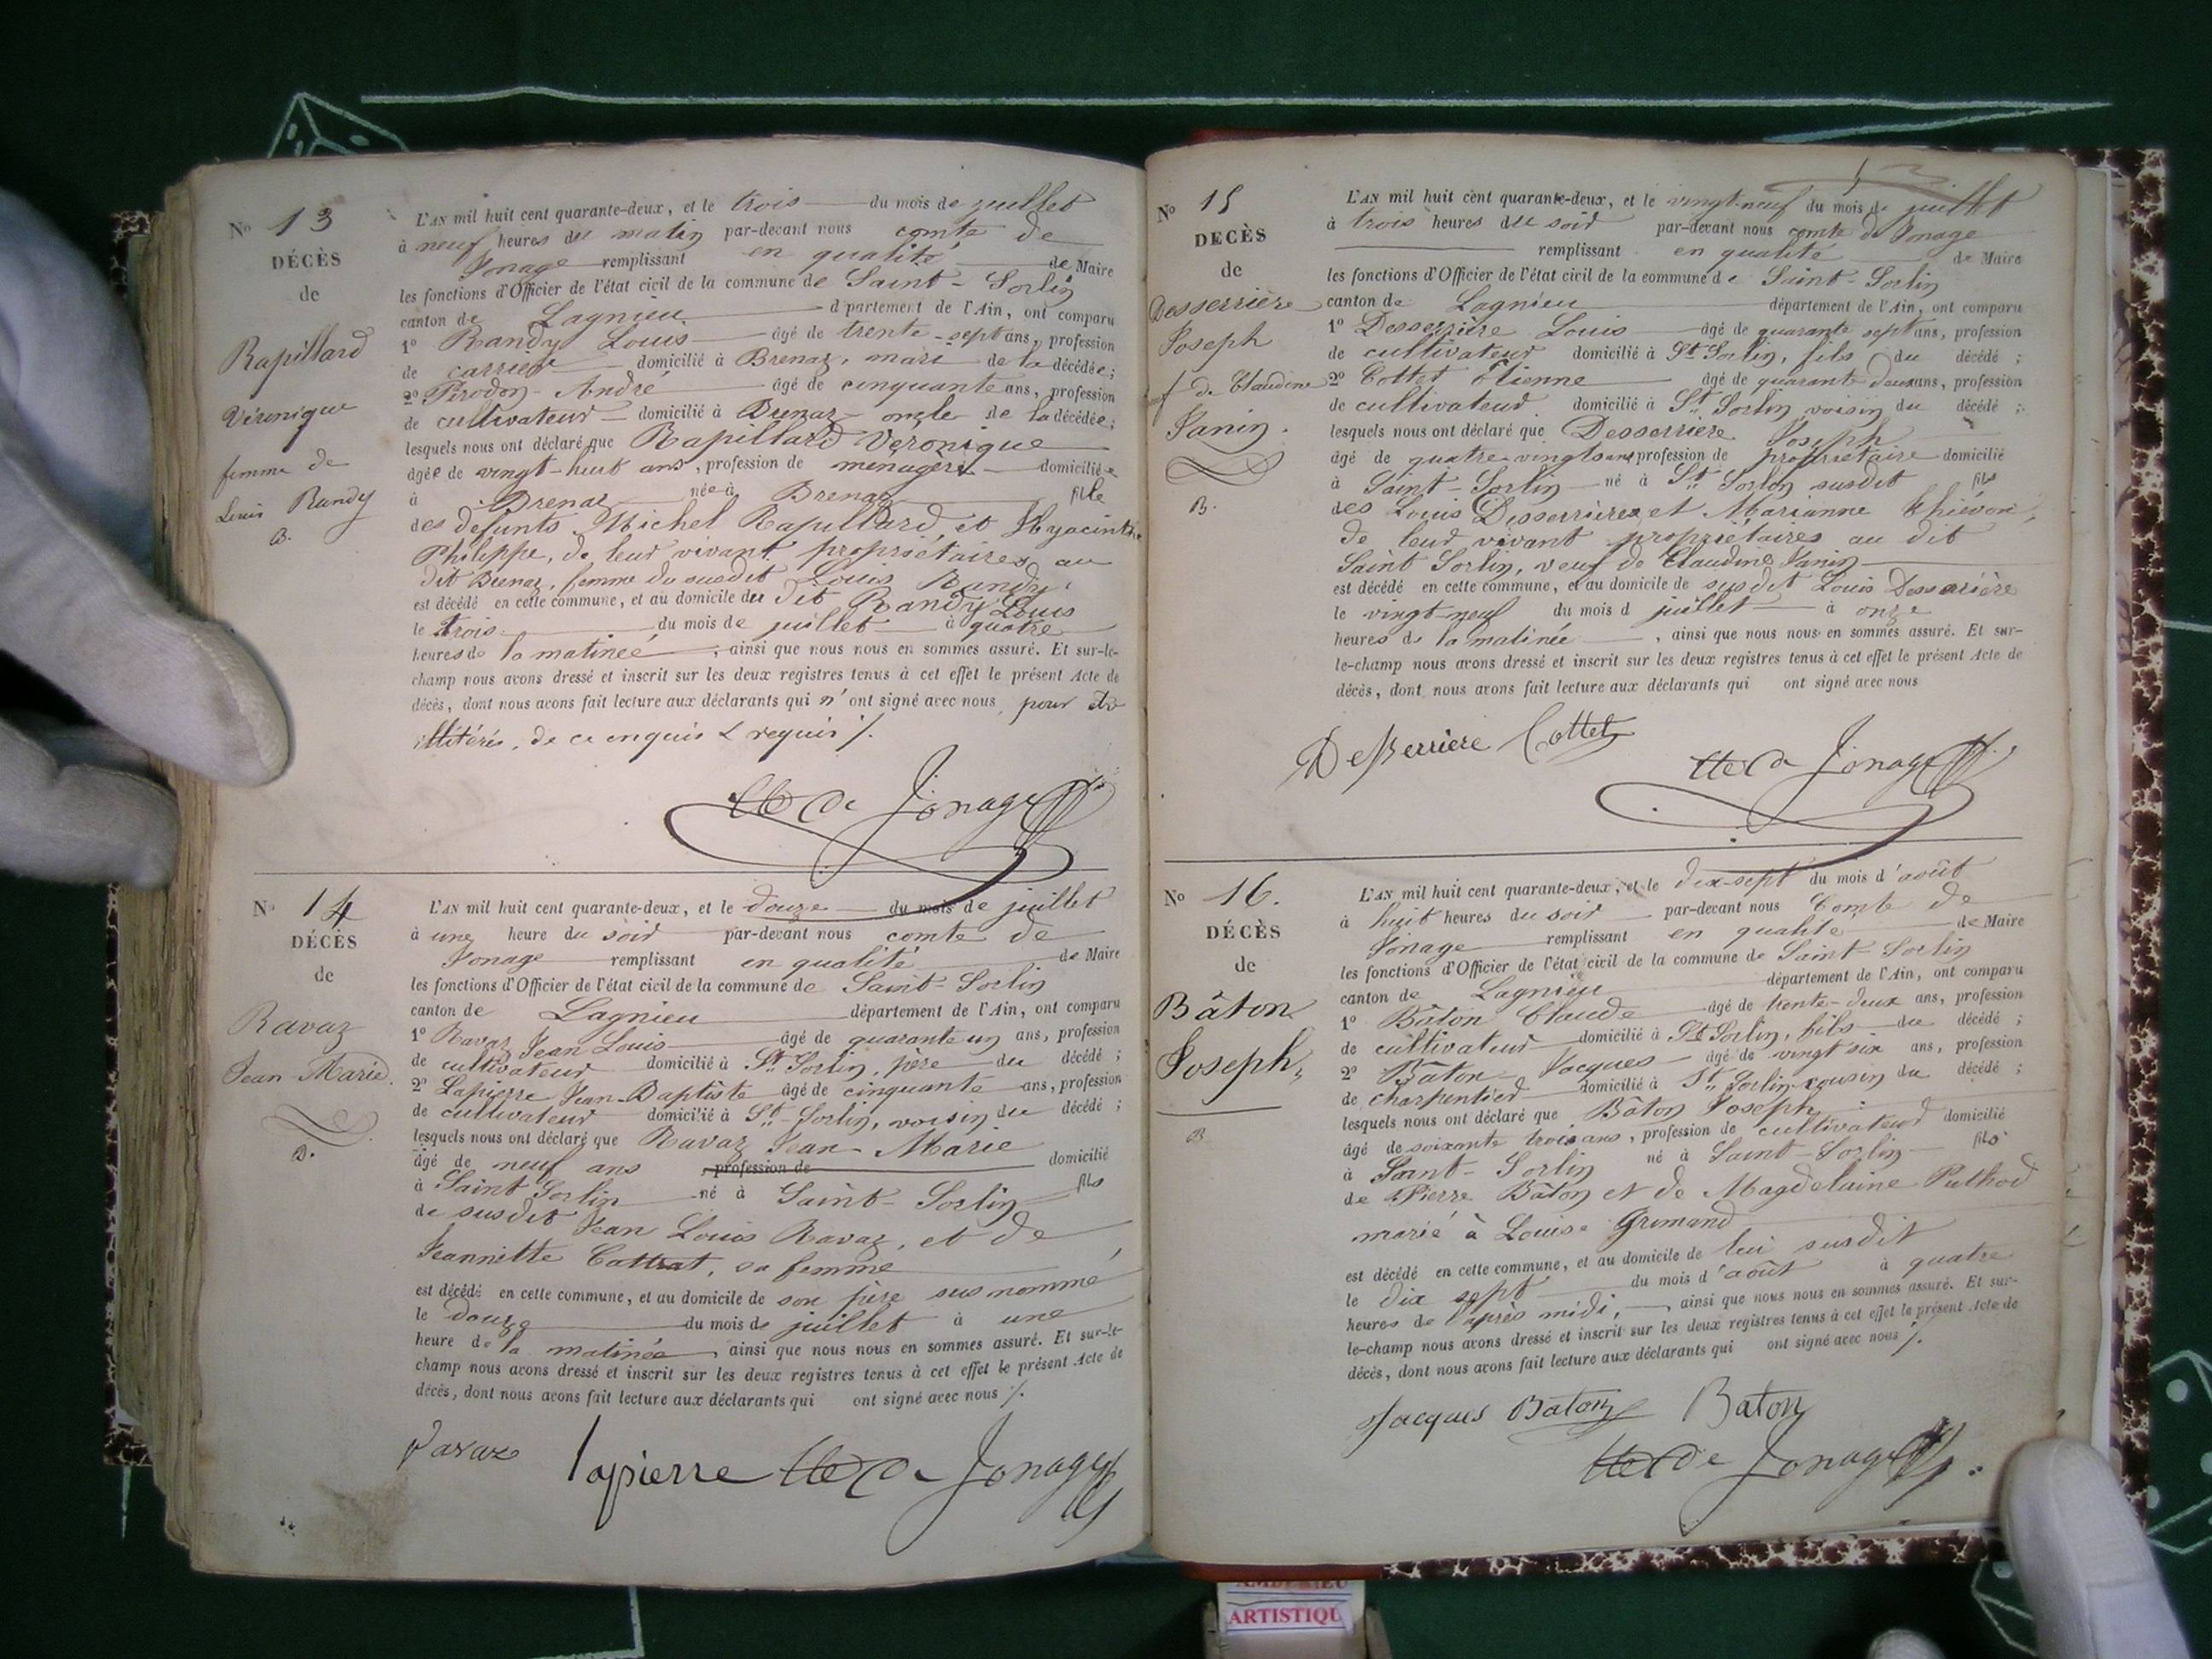 No 13
DÉCÈS
de
Rapillard
Véronique
femme de
Louis Randy
B.
L'AN mil huit cent quarante-deux, et le trois du mois de juillet
à neuf heures du matin par-devant nous comte de
Jonage remplissant en qualité de Maire
les fonctions d'Officier de l'état civil de la commune de Saint-Sorlin
canton de Lagnieu département de l'Ain, ont comparu
1o Randy Louis âgé de trente-sept ans, profession
de carrier domicilié à Brenaz, mari de la décédée;
2o Pirodon André âgé de cinquante ans, profession
de cultivateur domicilié à Brenaz oncle de la décédée;
lesquels nous ont déclaré que Rapillard Véronique
âgée de vingt-huit ans, profession de ménagère domiciliée
à Brenaz née à Brenaz fille
des défunts Michel Rapillard, et Hyacinthe
Philippe, de leur vivant propriétaires au
dit Brenaz, femme du susdit Louis Randy,
est décédé en cette commune, et au domicile du dit Randy Louis
le trois du mois de juillet à quatre
heures de la matinée, ainsi que nous nous en sommes assuré. Et sur-le-
champ nous avons dressé et inscrit sur les deux registres tenus à cet effet le présent Acte de
décès, dont nous avons fait lecture aux déclarants qui n'ont signé avec nous, pour être
illitérés, de ce enquis & requis ⁒.
Cte de Jonage
No 14
DÉCÈS
de
Ravaz
Jean-Marie.
B.
L'AN mil huit cent quarante-deux, et le douze du mois de juillet
à une heure du soir par-devant nous comte de
Jonage remplissant en qualité de Maire
les fonctions d'Officier de l'état civil de la commune de Saint-Sorlin
canton de Lagnieu département de l'Ain, ont comparu
1o Ravaz Jean Louis âgé de quarante un ans, profession
de cultivateur domicilié à St. Sorlin, père du décédé;
2o Lapierre Jean-Baptiste âgé de cinquante ans, profession
de cultivateur domicilié à St. Sorlin, voisin du décédé;
lesquels nous ont déclaré que Ravaz Jean-Marie
âgé de neuf ans profession de domicilié
à Saint Sorlin né à Saint-Sorlin fils
de susdit Jean Louis Ravaz, et de
Jeannette Cattrat, sa femme
est décédé en cette commune, et au domicile de son père sus nommé
le douze du mois de juillet à une
heure de la matinée, ainsi que nous nous en sommes assuré. Et sur-le-
champ nous avons dressé et inscrit sur les deux registres tenus à cet effet le présent Acte de
décès, dont nous avons fait lecture aux déclarants qui ont signé avec nous ⁒.
Ravaz lapierre Cte de Jonage
No 15
DÉCÈS
de
Desserrière
Joseph
veuf de Claudine
Janin.
B.
L'AN mil huit cent quarante-deux, et le vingt-neuf du mois de juillet
à trois heures du soir par-devant nous comte de Jonage
remplissant en qualité de Maire
les fonctions d'Officier de l'état civil de la commune de Saint-Sorlin
canton de Lagnieu département de l'Ain, ont comparu
1o Desserrière Louis âgé de quarante sept ans, profession
de cultivateur domicilié à St. Sorlin, fils du décédé;
2o Cottet Etienne âgé de quarante deux ans, profession
de cultivateur domicilié à St. Sorlin voisin du décédé;
lesquels nous ont déclaré que Desserriere Joseph
âgé de quatre-vingts ans profession de propriétaire domicilié
à Saint-Sorlin né à St. Sorlin susdit fils
des Louis Desserrière et Marianne
de leur vivant propriétaires au dit
Saint Sorlin, veuf de Claudine Janin
est décédé en cette commune, et au domicile de susdit Louis Desserrière
le vingt-neuf du mois d juillet à onze
heures de la matinée, ainsi que nous nous en sommes assuré. Et sur-
le-champ nous avons dressé et inscrit sur les deux registres tenus à cet effet le présent Acte de
décès, dont nous avons fait lecture aux déclarants qui ont signé avec nous
Desserriere Cottet
Cte de Jonage
No 16.
DÉCÈS
de
Bâton
Joseph,
B
L'AN mil huit cent quarante-deux, et le dix-sept du mois d'août
à huit heures du soir par-devant nous Comte de
Jonage remplissant en qualité de Maire
les fonctions d'Officier de l'état civil de la commune de Saint-Sorlin
canton de Lagnieu département de l'Ain, ont comparu
1o Bâton Claude âgé de trente-deux ans, profession
de cultivateur domicilié à St. Sorlin, fils du décédé;
2o Bâton Jacques âgé de vingt six ans, profession
de charpentier domicilié à St. Sorlin cousin du décédé;
lesquels nous ont déclaré que Bâton Joseph
âgé de soixante trois ans, profession de cultivateur domicilié
à Saint-Sorlin né à Saint-Sorlin fils
de Pierre Bâton et de Magdelaine Puthod
marié à Louise Grimand
est décédé en cette commune, et au domicile de lui susdit
le dix sept du mois d'août à quatre
heures de l'après midi, ainsi que nous nous en sommes assuré. Et sur-
le-champ nous avons dressé et inscrit sur les deux registres tenus à cet effet le présent Acte de
décès, dont nous avons fait lecture aux déclarants qui ont signé avec nous ⁒.
Jacques Baton Baton
Cte de Jonage
ARTISTIQU